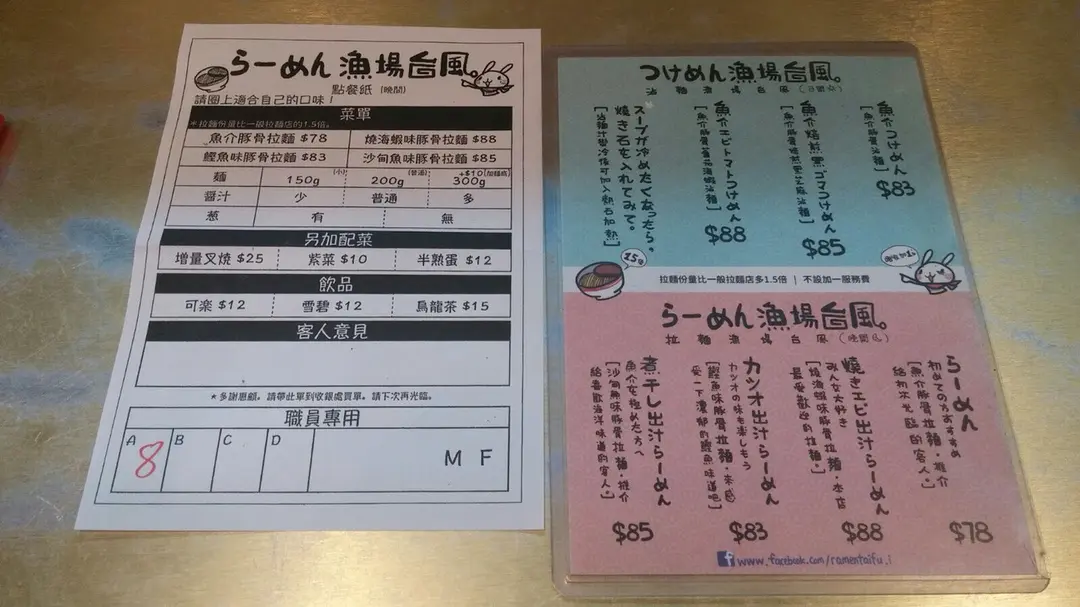 らーめん 漁場台風。
點餐紙 (晚間)
請圈上適合自己的口味!
菜單
*拉麵份量比一般拉麵店的1.5倍。
魚介豚骨拉麵 $78 燒海蝦味豚骨拉麵 $88
鰹魚味豚骨拉麵 $83 沙甸魚味豚骨拉麵 $85
麵 150g (小) 200g (普通) 300g +$10 (加麵底)
醤汁 少 普通 多
葱 有 無
另加配菜
增量叉燒 $25 紫菜 $10 半熟蛋 $12
飲品
可樂 $12 雪碧 $12 烏龍茶 $15
客人意見
*多謝惠顧。請帶此單到收銀處買單。請下次再光臨。
職員專用
A B C D
8
M F
つけめん 漁場台風。
魚介つけめん
$83
魚介焙煎黒ゴマつけめん
$85
魚介エビトマトつけめん
$88
スープが冷めたくなったら。
焼き石を入れてみて。
1.5倍
拉麵份量比一般拉麵店多1.5倍 | 不設加一服務費
らーめん 漁場台風。
らーめん
初めての方おすすめ
[魚介豚骨拉麵・推介
給初次光臨的客人。]
$78
焼きエビ出汁らーめん
みんな大好き
[燒海蝦味豚骨拉麵・本店
最受歡迎的拉麵。]
$88
カツオ出汁らーめん
カツオの味を楽しもう
[鰹魚味豚骨拉麵・來感
受一下濃郁的鰹魚味道吧]
$83
煮干し出汁らーめん
魚介を極めた方へ
[沙甸魚味豚骨拉麵・推介
給喜歡海洋味道的客人。]
$85
www.facebook.com/ramentaifu.1